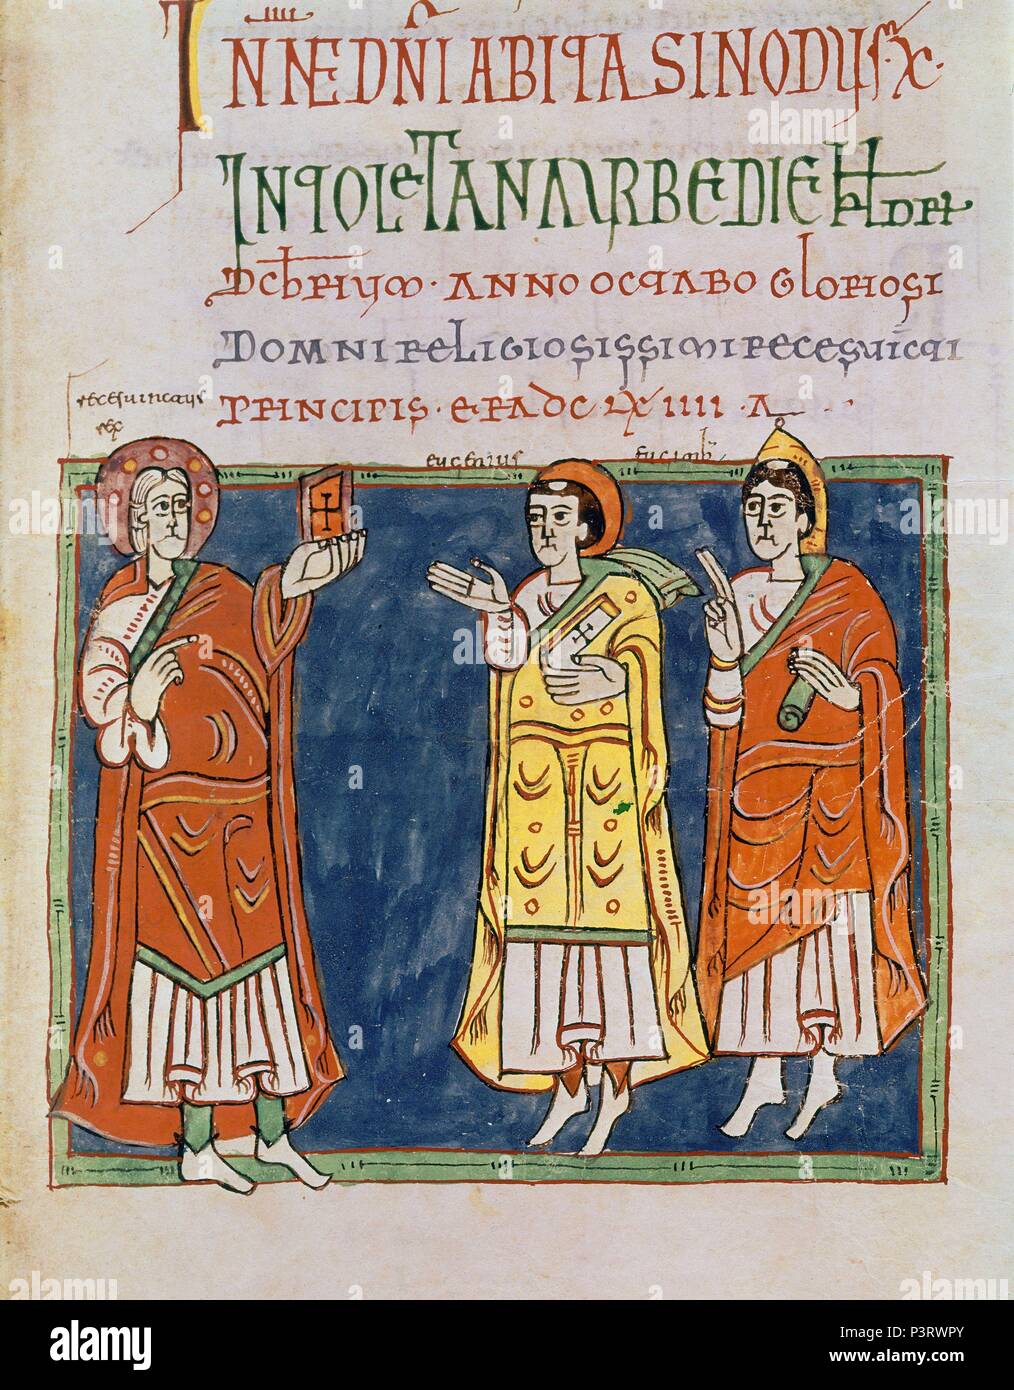 IN NNE DNI ABITA SINODUS X
IN TOLETANA URBE DIE KLDRS
DCBRIUM · ANNO OCTABO GLORIOSI
DOMNI RELIGIOSISSIMI RECESUICTI
PRINCIPIS · ERA DC LXIIII · A
recesuinctus
rex
eugenius
alamy
a
alamy stock photo
Image ID: P3RWPY
www.alamy.com